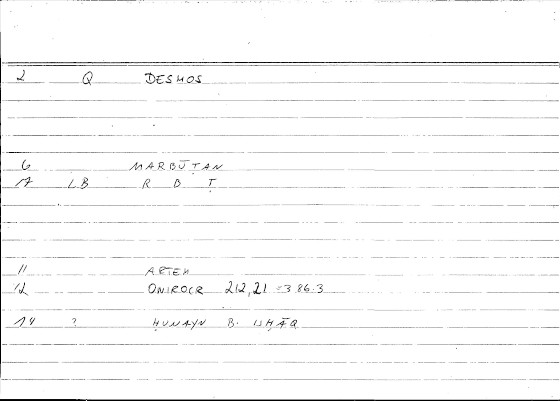 2 Q DESMOS
6 MARBŪṬAN
17 LB R B Ṭ
11 ARTEM
12 ONIROCR 212,21 = 386.3
14 ? ḤUNAYN B. ISḤĀQ